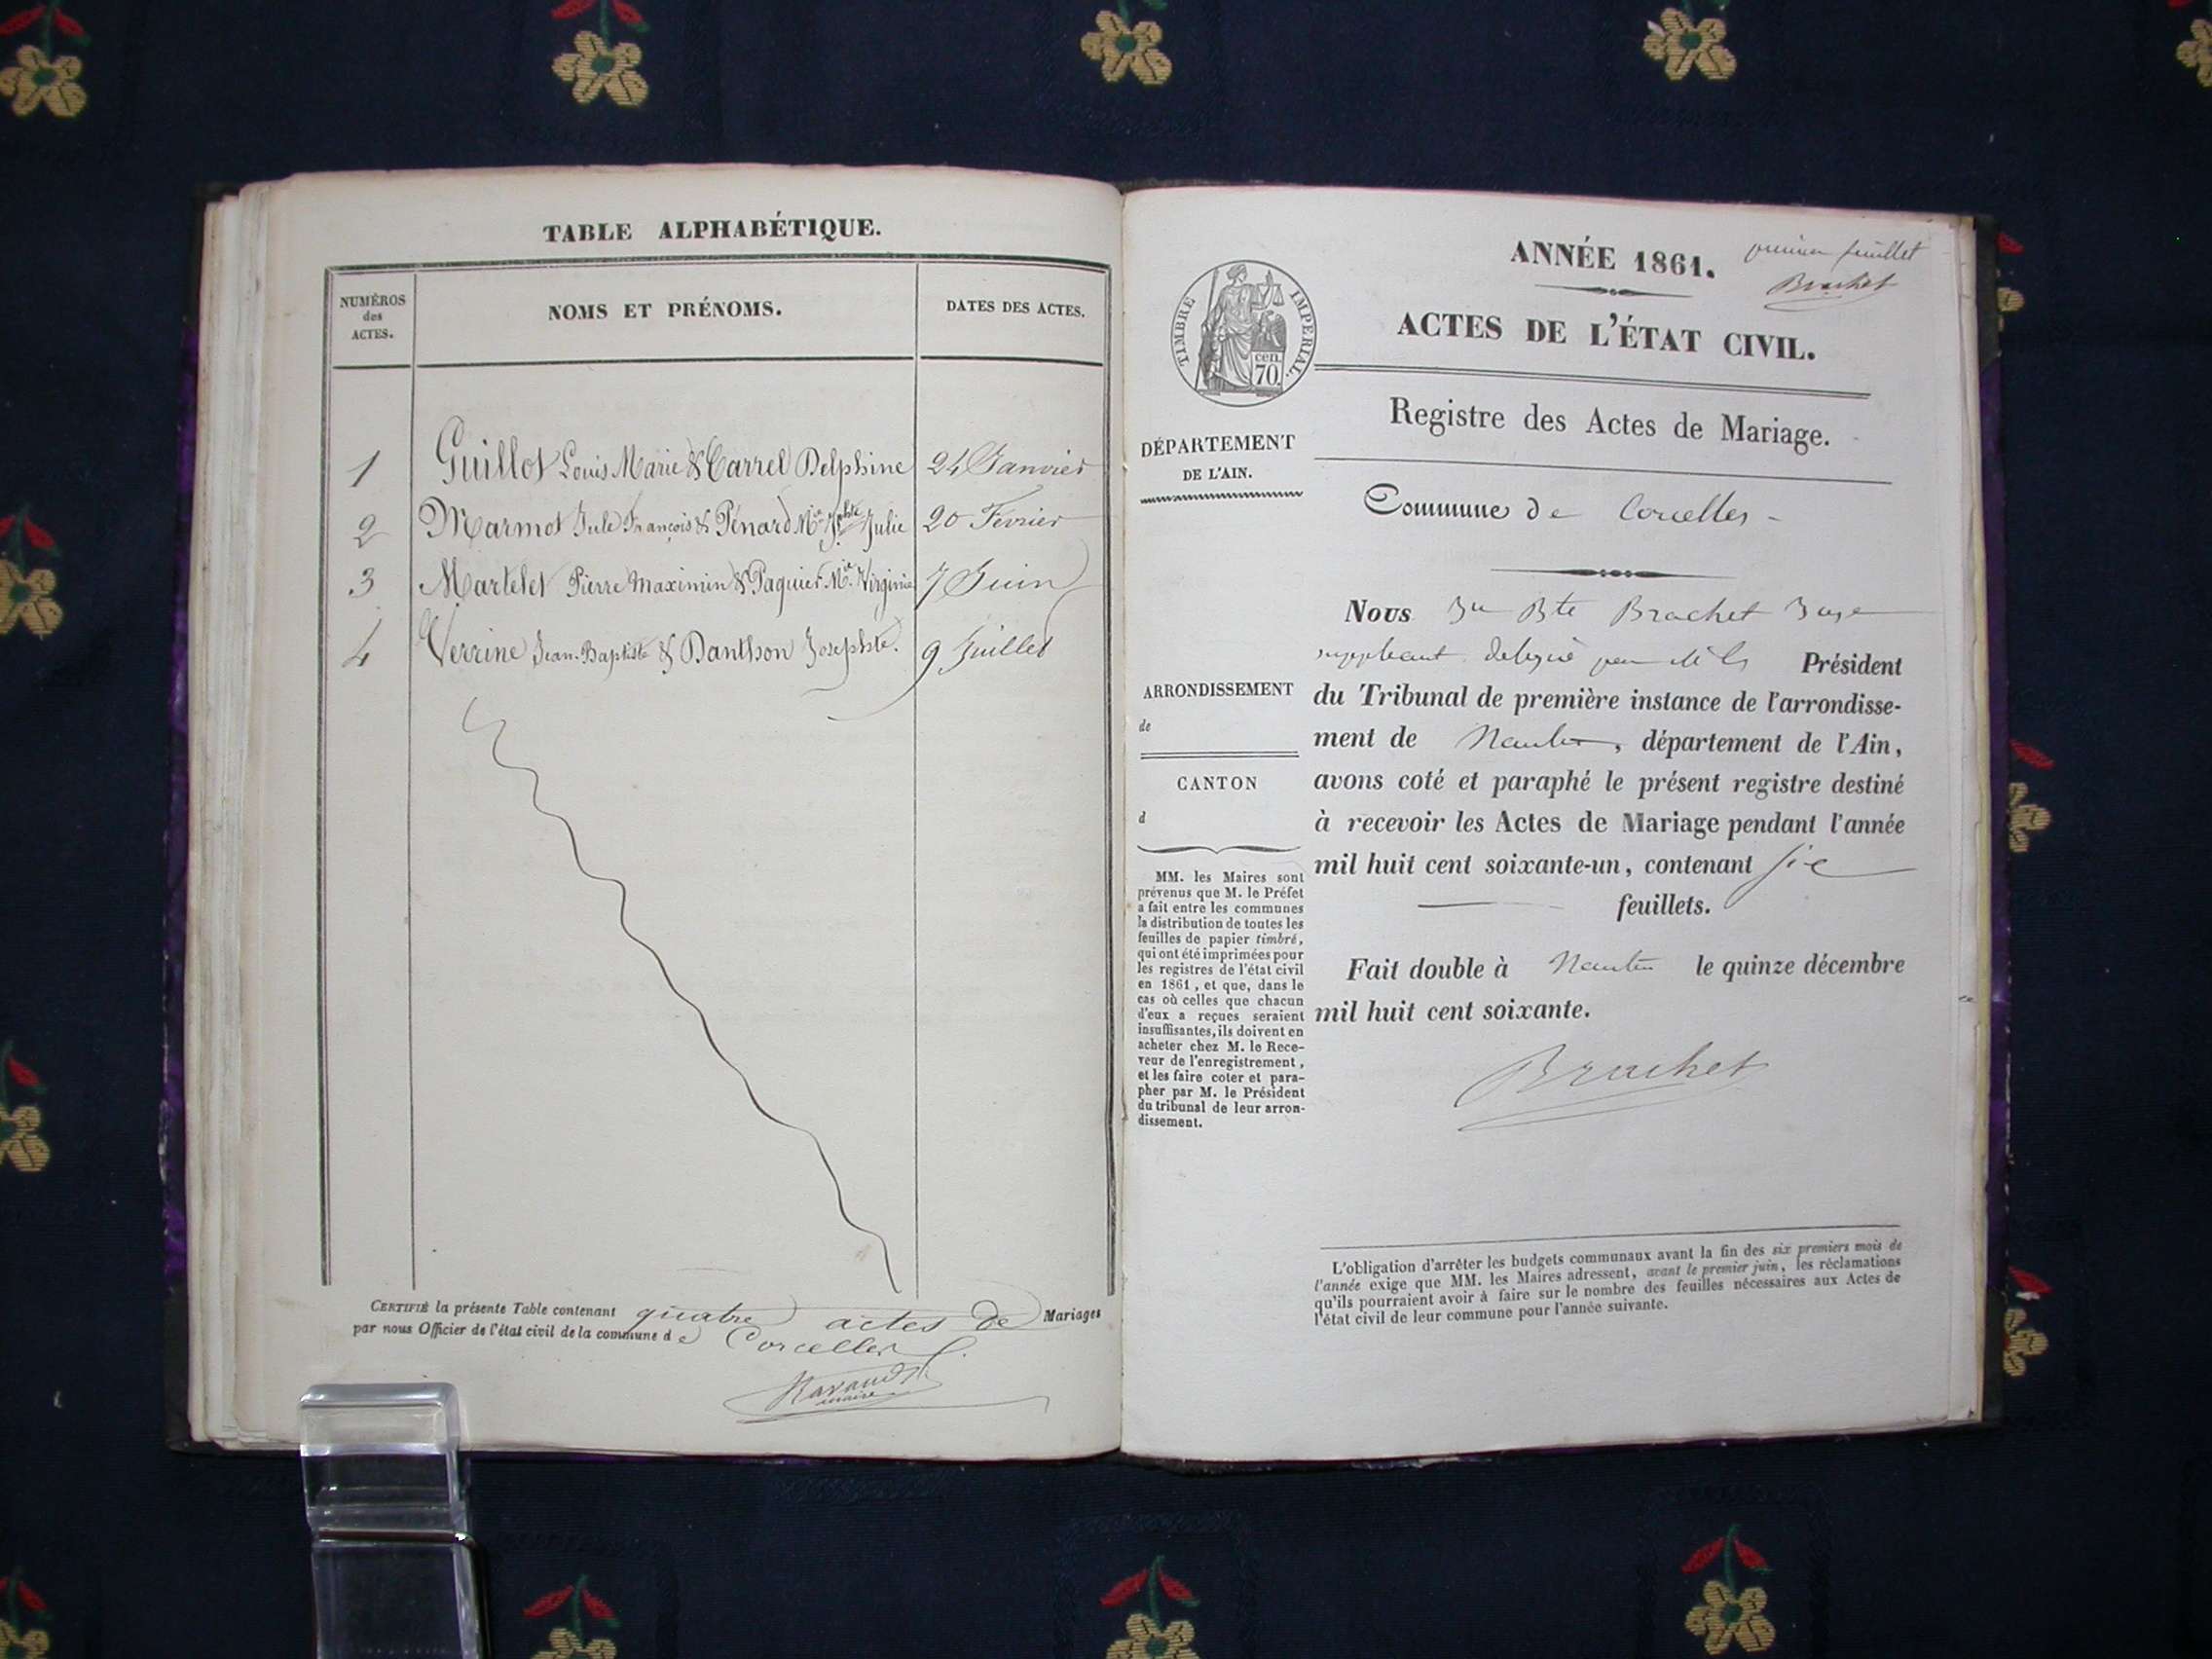 TABLE ALPHABÉTIQUE.
NUMÉROS
des
ACTES.
NOMS ET PRÉNOMS.
DATES DES ACTES.
1 Guillot Louis Marie & Carrel Delphine 24 Janvier
2 Marmot Jule François & Pénard Mie Jphte Julie 20 Février
3 Martelet Pierre Maximin & Paquier Mie Virginie 7 Juin
4 Verrine Jean-Baptiste & Danthon Josephte. 9 Juillet
CERTIFIÉ la présente Table contenant quatre actes de Mariages
par nous Officier de l'état civil de la commune de Corcelles
Ravaud
maire
premier feuillet
Brachet
ANNÉE 1861.
ACTES DE L'ÉTAT CIVIL.
TIMBRE IMPERIAL.
cen.
70.
Registre des Actes de Mariage.
DÉPARTEMENT
DE L'AIN.
Commune de Corcelles
Nous Jn Bte Brachet Juge
suppléant délégué par Président
du Tribunal de première instance de l'arrondisse-
ment de Nantua, département de l'Ain,
avons coté et paraphé le présent registre destiné
à recevoir les Actes de Mariage pendant l'année
mil huit cent soixante-un, contenant six
feuillets.
Fait double à Nantua le quinze décembre
mil huit cent soixante.
Brachet
ARRONDISSEMENT
de
CANTON
d
MM. les Maires sont
prévenus que M. le Préfet
a fait entre les communes
la distribution de toutes les
feuilles de papier timbré,
qui ont été imprimées pour
les registres de l'état civil
en 1861, et que, dans le
cas où celles que chacun
d'eux a reçues seraient
insuffisantes, ils doivent en
acheter chez M. le Rece-
veur de l'enregistrement,
et les faire coter et para-
pher par M. le Président
du tribunal de leur arron-
dissement.
L'obligation d'arrêter les budgets communaux avant la fin des six premiers mois de
l'année exige que MM. les Maires adressent, avant le premier juin, les réclamations
qu'ils pourraient avoir à faire sur le nombre des feuilles nécessaires aux Actes de
l'état civil de leur commune pour l'année suivante.